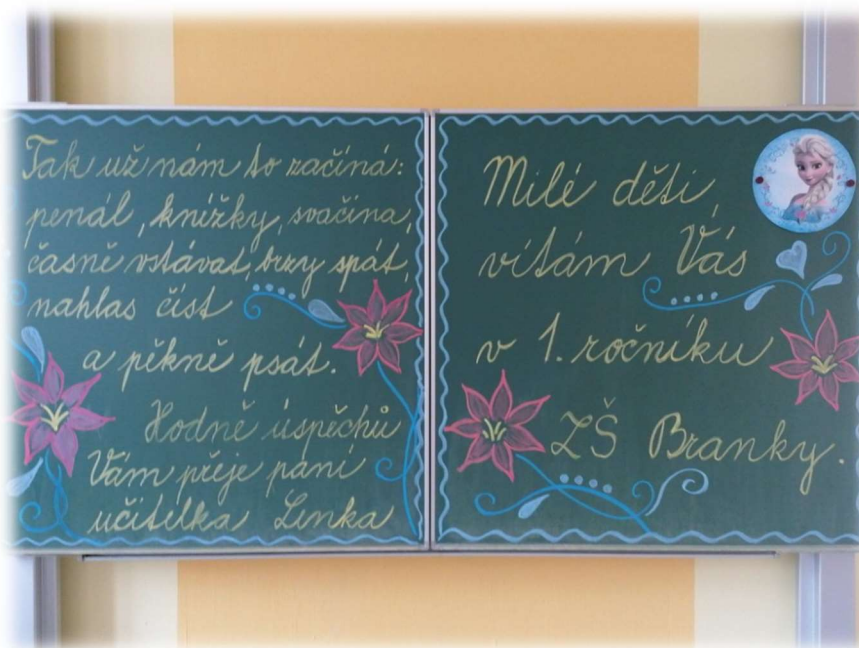 Tak už nám to začíná:
penál, knížky, svačina,
časně vstávat, brzy spát,
nahlas číst
a pěkně psát.
Hodně úspěchů
Vám přeje paní
učitelka Lenka
Milé děti,
vítám Vás
v 1. ročníku
ZŠ Branky.